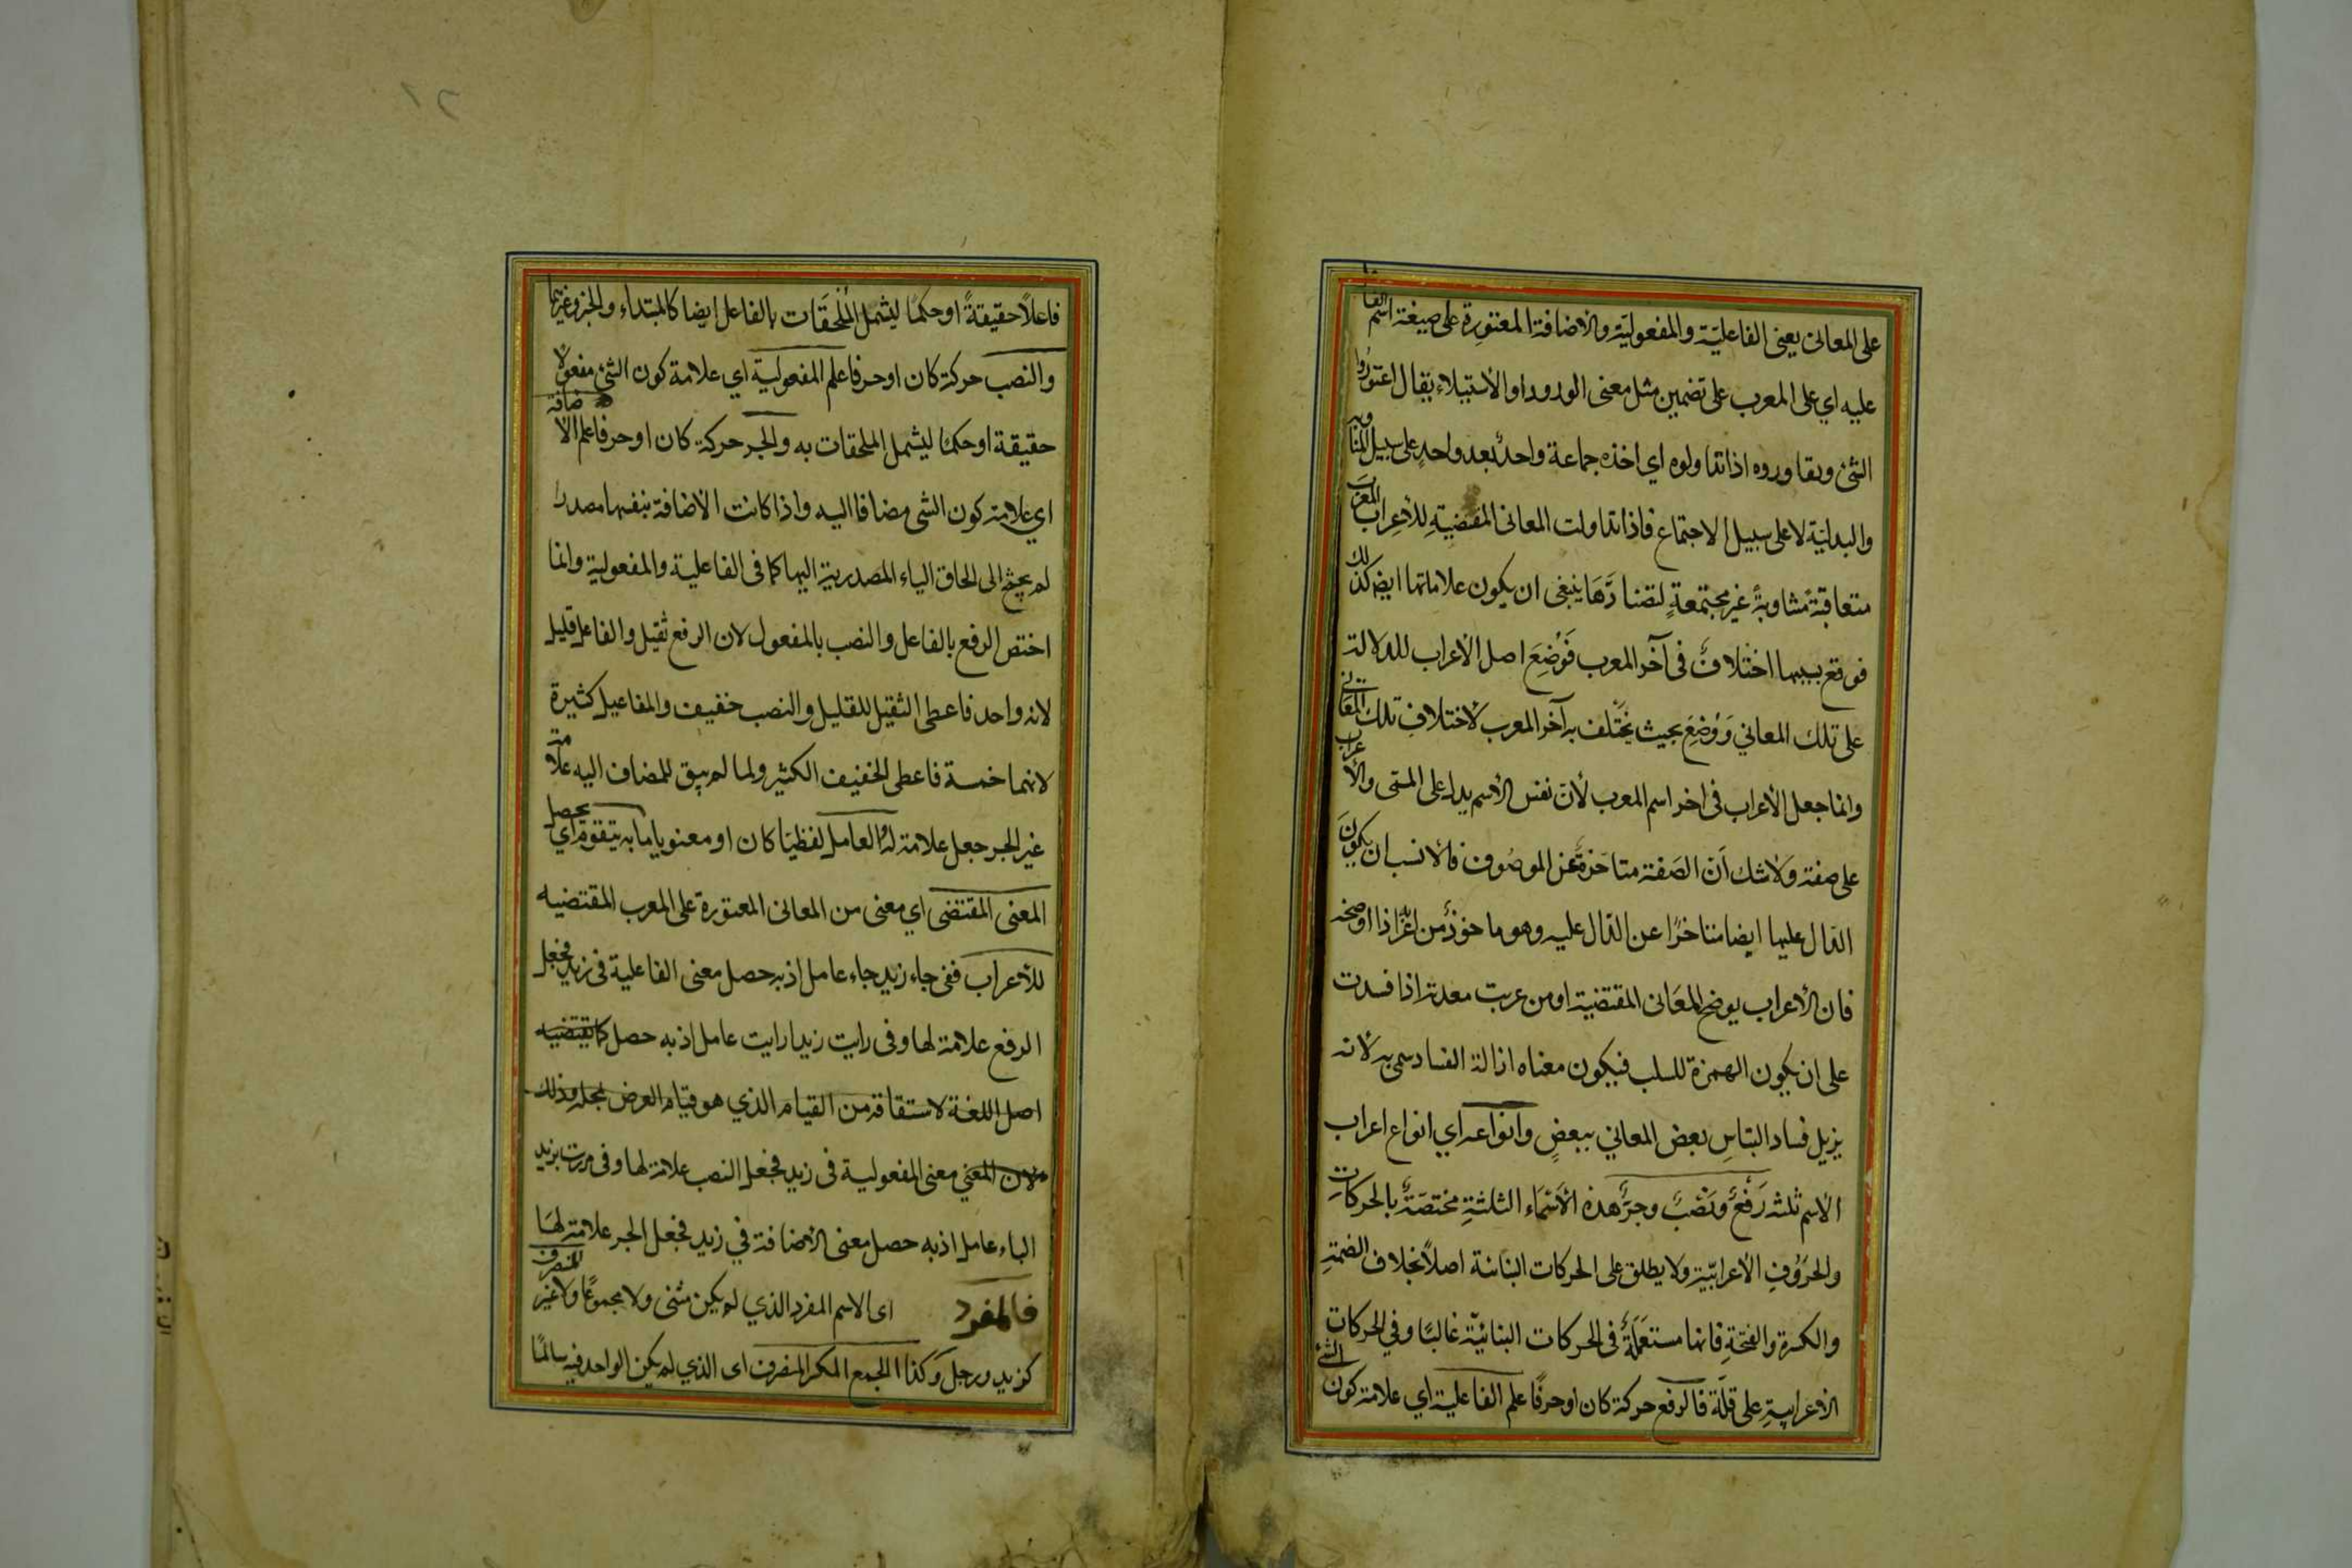 على المعانى يعنى الفاعليّة والمفعوليّة والاضافة المعتورة على صيغة اسم الفا
عليه اي على المعرب على تضمين مثل معنى الورود او الاستيلاء يقال اعتوروا
الشئ وتعاوروه اذا تداولوه اي اخذه جماعة واحدٌ بعد واحدٍ على سبيل المناوبه
والبدليّة لا على سبيل الاجتماع فاذا تداولت المعانى المقتضيةِ للاعراب المعرب
متعاقبةً متناوبةً غير مجتمعةٍ لتضادّها ينبغى ان يكون علاماتها ايضا كذلك
فوقع بسببها اختلافٌ فى آخر المعرب فَوُضِعَ اصل الاعراب للدلالة
على تلك المعاني وَوُضِعَ بحيث يختلف به آخر المعرب لاختلافِ تلك المعانى
وانما جعل الاعراب فى اخر اسم المعرب لأن نفس الاسم يدل على المسمّى والاعراب
على صفته ولا شك أن الصفة متاخرةٌ عن الموصُوف فالانسب ان يكونَ
الدّال عليها ايضا متاخرًا عن الدّال عليه وهو ماخوذٌ من اعربه اذا اوضحه
فان الاعراب يوضح المعَانى المقتضية او من عربت معدته اذا فسدت
على ان يكون الهمزة للسلب فيكون معناه ازالة الفساد سمى به لانه
يزيل فساد التباسِ بعض المعاني ببعضٍ وانواعه اي انواع اعراب
الاسم ثلثه رَفعٌ ونَصْبٌ وجرٌّ هذه الأسْمَاء الثلثةِ مختصّةٌ بالحركاتِ
والحرُوُفِ الاعرابيّةِ ولا يطلق على الحركات البنائية اصلاً بخلاف الضمةِ
والكسرة والفتحةِ فانها مستعمَلةٌ فى الحركات البنائيّة غالبًا وفي الحركات
الاعرابيةِ على قلّة فالرفع حركة كان او حرفًا علم الفاعلية اي علامة كون الشئ
فاعلاً حقيقةً او حكمًا ليشمل المُلحَقَات بالفاعل ايضا كالمبتداء والخبر وغيرهما
والنصب حركة كان او حرفا علم المفعولية اي علامة كون الشئ مفعولاً
حقيقة او حكمًا ليشمل الملحقات به والجر حركة كان او حرفا علم الاضافة
اي علامة كون الشى مضافا اليه واذا كانت الاضافة بنفسها مصدرا
لم يحتج الى الحاق الياء المصدرية اليها كما فى الفاعلية والمفعولية وانما
اختص الرفع بالفاعل والنصب بالمفعول لان الرفع ثقيل والفاعل قليل
لانه واحد فاعطى الثقيل للقليل والنصب خفيف والمفاعيل كثيرة
لانها خمسة فاعطى الخفيف الكثير ولما لم يبق للمضاف اليه علامة
غير الجر جعل علامة له والعامل لفظيّا كان او معنويا ما به يتقوم اي يحصل
المعنى المقتضى اي معنى من المعانى المعتورة على المعرب المقتضيه
للاعراب ففى جاء زيد جاء عامل اذ به حصل معنى الفاعلية فى زيد فجعل
الرفع علامة لها وفى رايت زيدا رايت عامل اذ به حصل كما يقتضيه
اصل اللغة لاستقاقه من القيام الذي هو قيام العرض بمحله وذلك
لان المعني معنى المفعولية فى زيد فجعل النصب علامة لها وفى مررت بزيد
الباء عامل اذ به حصل معنى الاضافة في زيد فجعل الجر علامة لها
فالمفرد اى الاسم المفرد الذي لم يكن مثنى ولا مجموعًا ولا غير المنصرف
كزيد ورجل وَكذا الجمع المكسر المنصرف اى الذي لم يكن الواحد فيه سالمًا
١٢